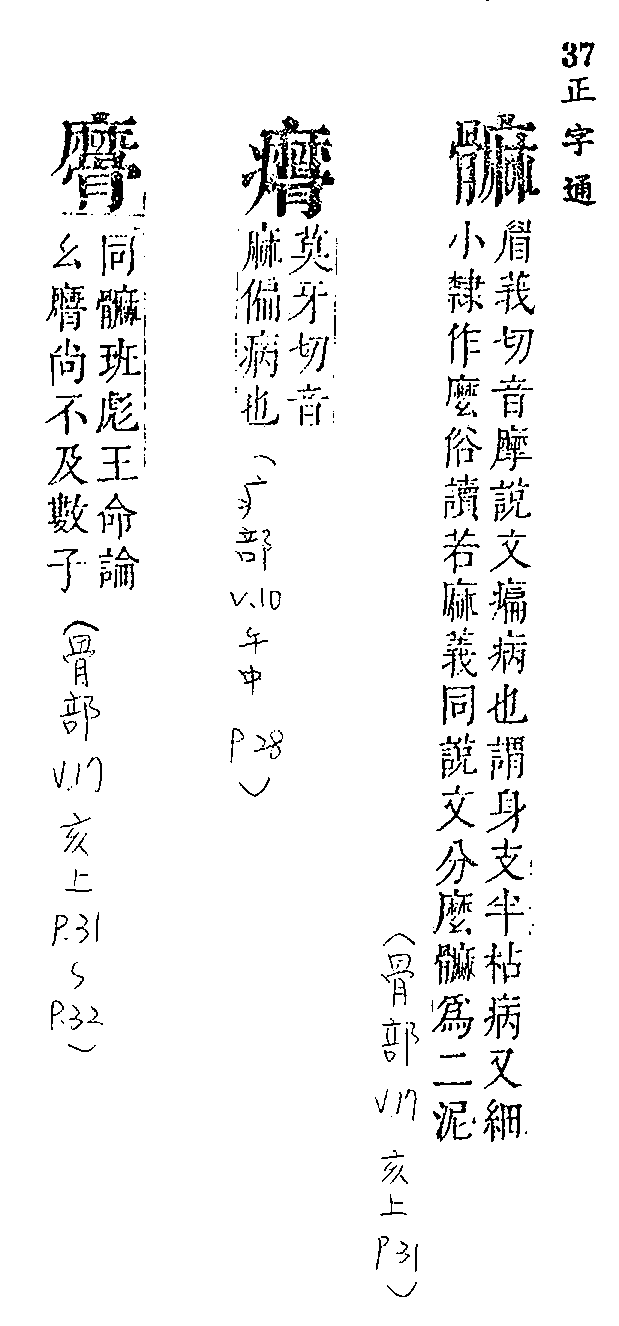 37正字通
髍
眉莪切音摩說文瘺病也謂身支半枯病又細
小隸作麼俗讀若麻義同說文分麼髍爲二泥
（骨部 V.17 亥上 P.31）
莫牙切音
麻偏病也
（疒部 V.10 午中 P.28）
䯢
同髍班彪王命論
幺䯢尚不及數子
（骨部 V.17 亥上 P.31～P.32）